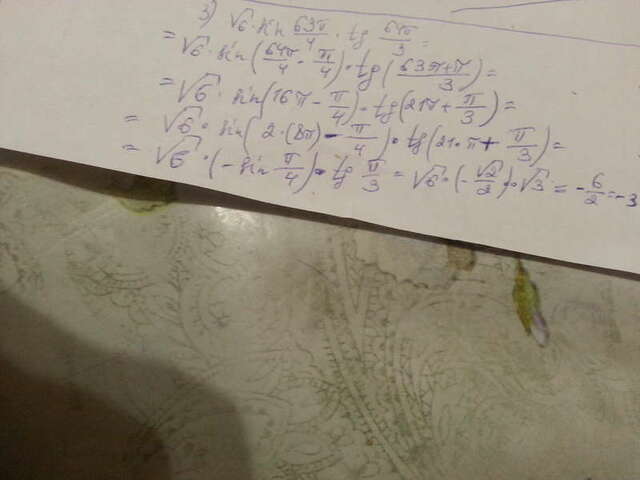 3) √6 · sin 63π/4 · tg 64π/3 =
= √6 · sin (64π/4 - π/4) · tg (63π+π/3) =
= √6 · sin (16π - π/4) · tg (21π + π/3) =
= √6 · sin (2·(8π) - π/4) · tg (21·π + π/3) =
= √6 · (-sin π/4) · tg π/3 = √6 · (-√2/2) · √3 = -6/2 = -3